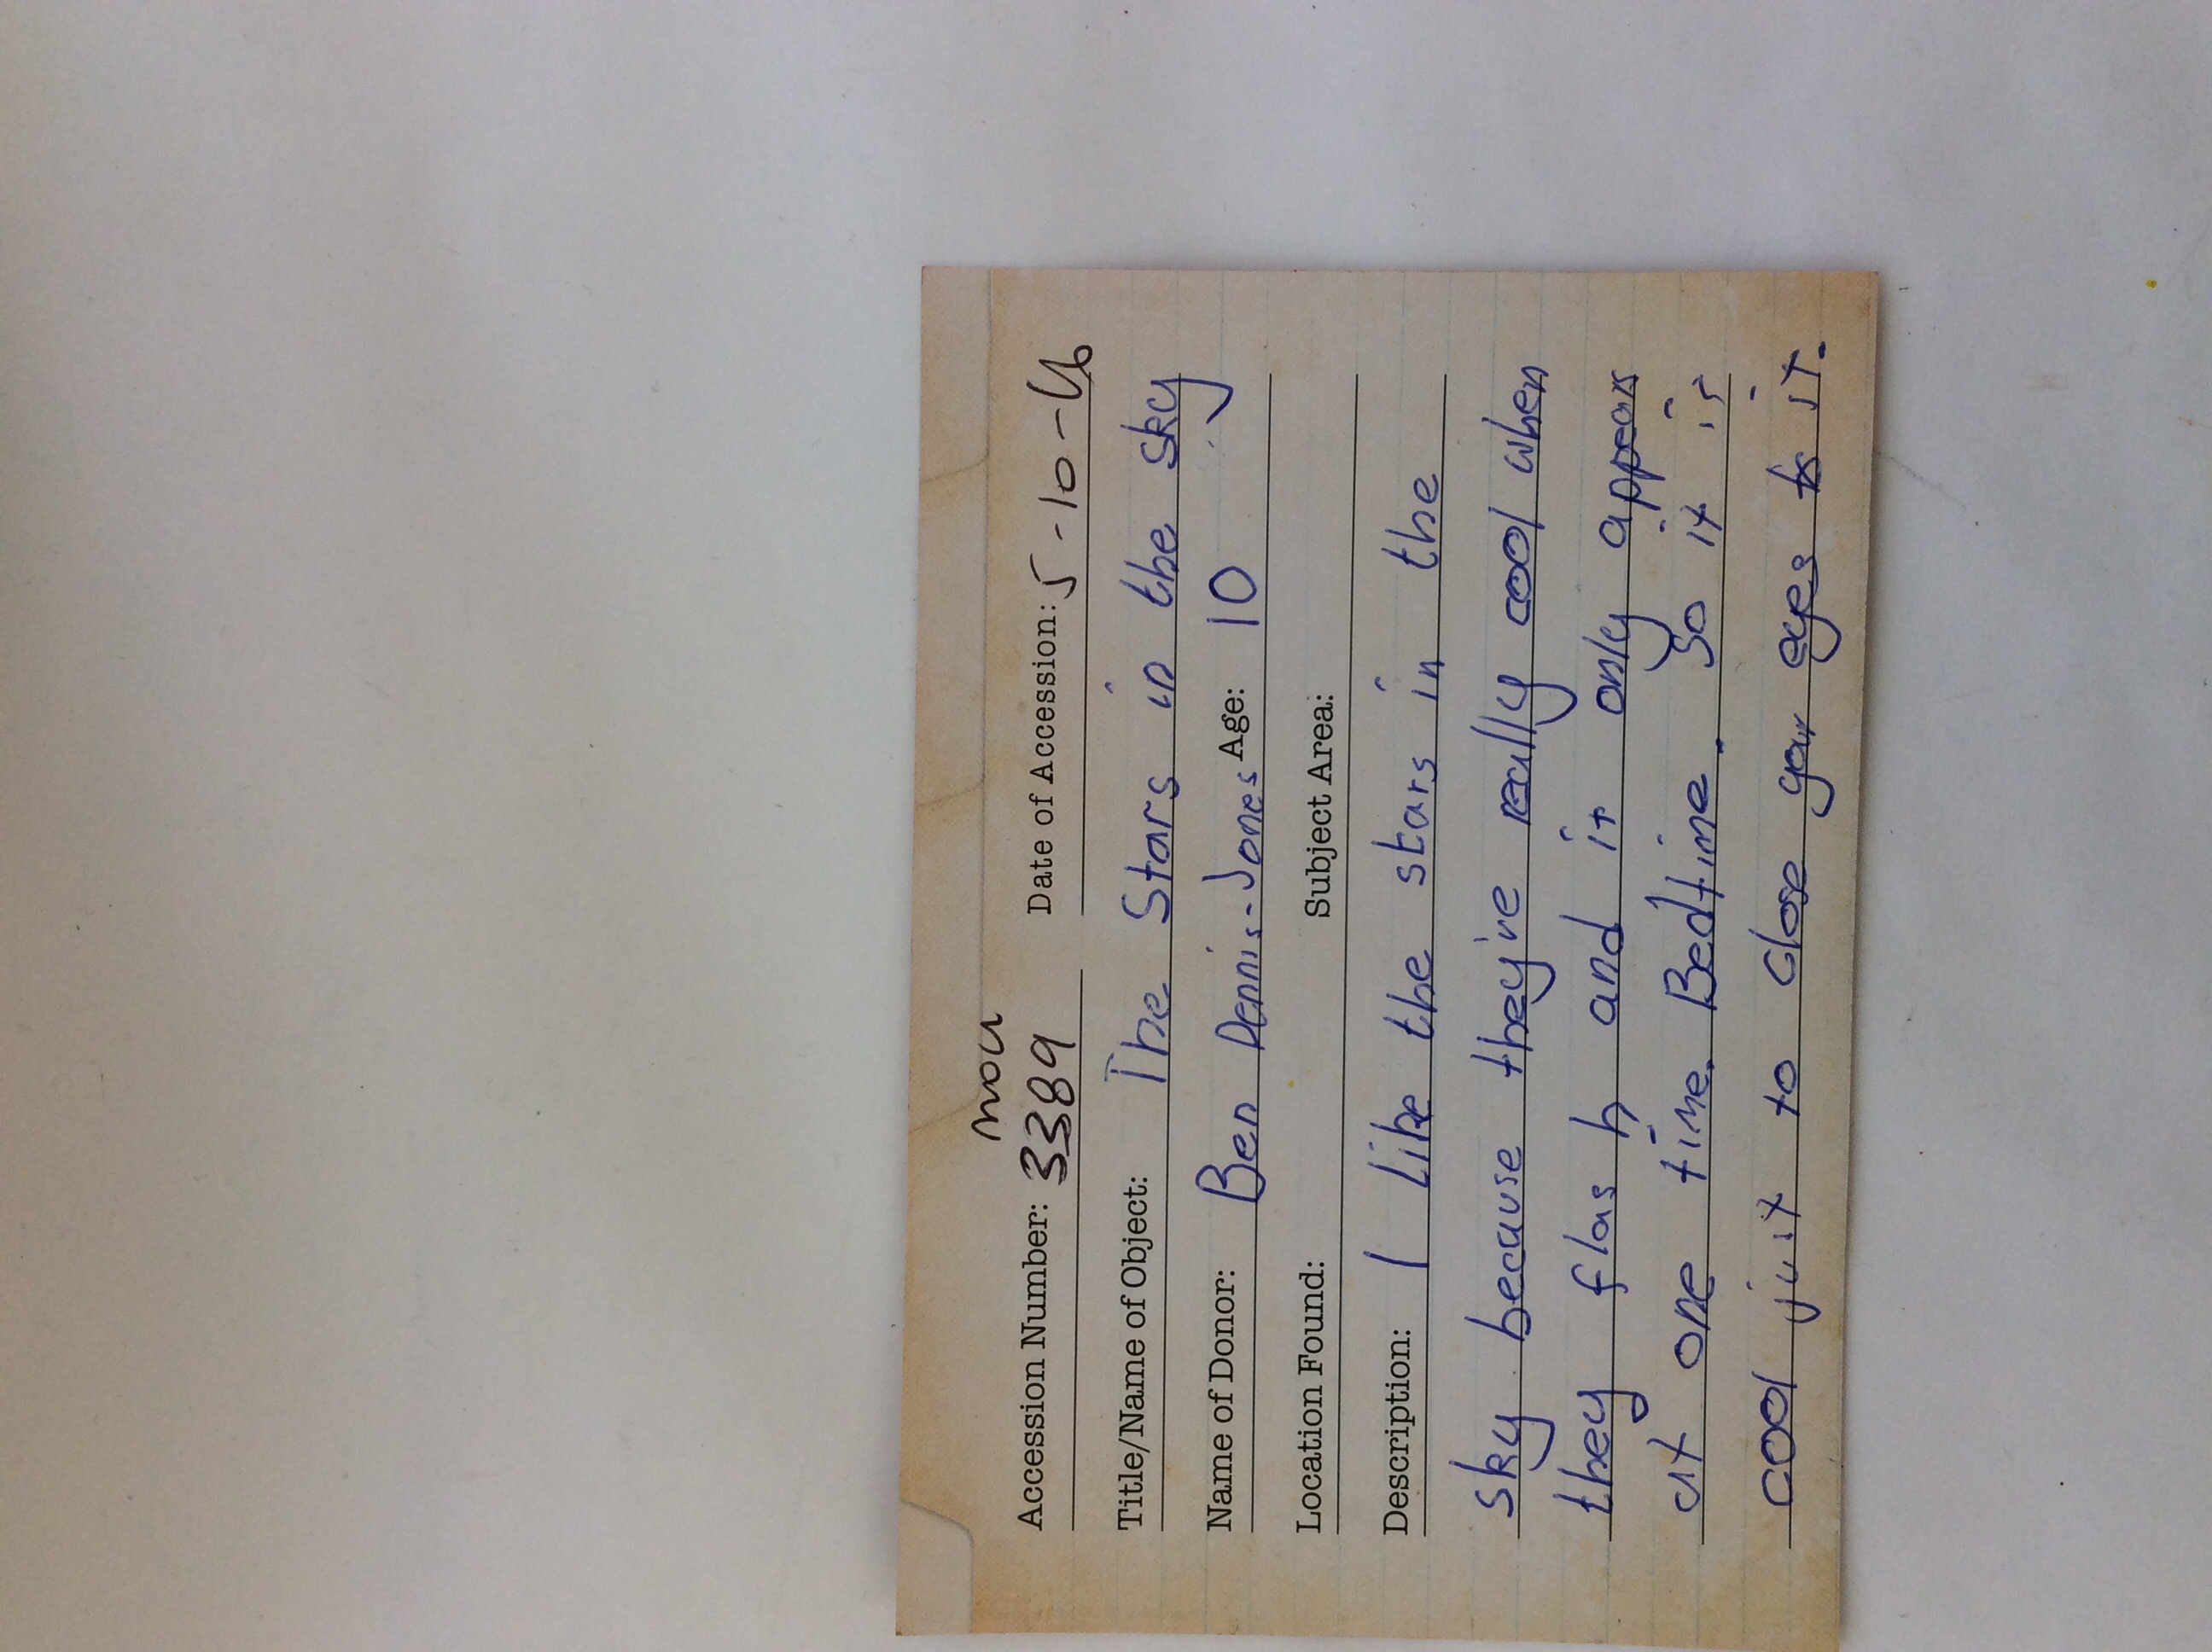 mou
Accession Number: 3389 Date of Accession: 5-10-16
Title/Name of Object: The Stars in the sky
Name of Donor: Ben Dennis-Jones Age: 10
Location Found: Subject Area:
Description: I like the stars in the
sky because they're really cool when
they flash and it only appears
at one time. Bedtime. So it is
cool just to close your eyes to it.